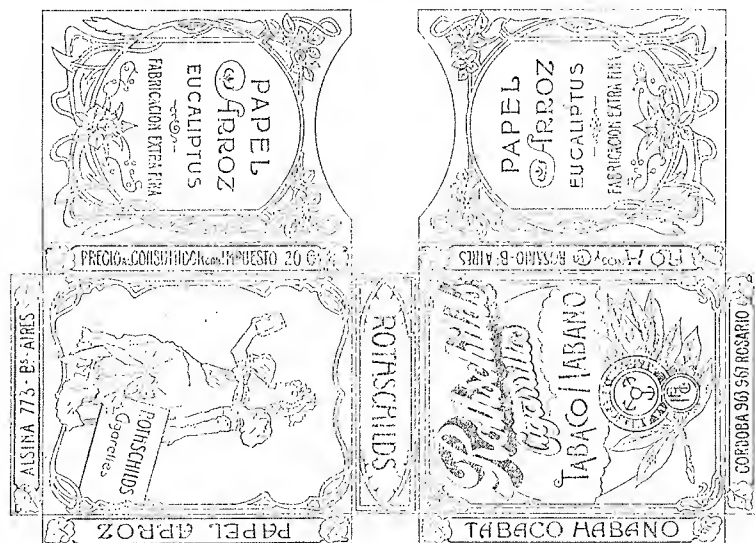 PAPEL
ARROZ
EUCALIPTUS
FABRICACION EXTRA FINA
PAPEL
ARROZ
EUCALIPTUS
FABRICACION EXTRA FINA
PRECIO AL CONSUMIDOR CON IMPUESTO 20 C
ROSARIO - B. AIRES
ALSINA 773 - Bs AIRES
ROTHSCHILDS
Cigarettes
ROTHSCHILDS
Rothschilds
Cigarrillos
TABACO HABANO
CORDOBA 961 967 ROSARIO
PAPEL ARROZ
TABACO HABANO